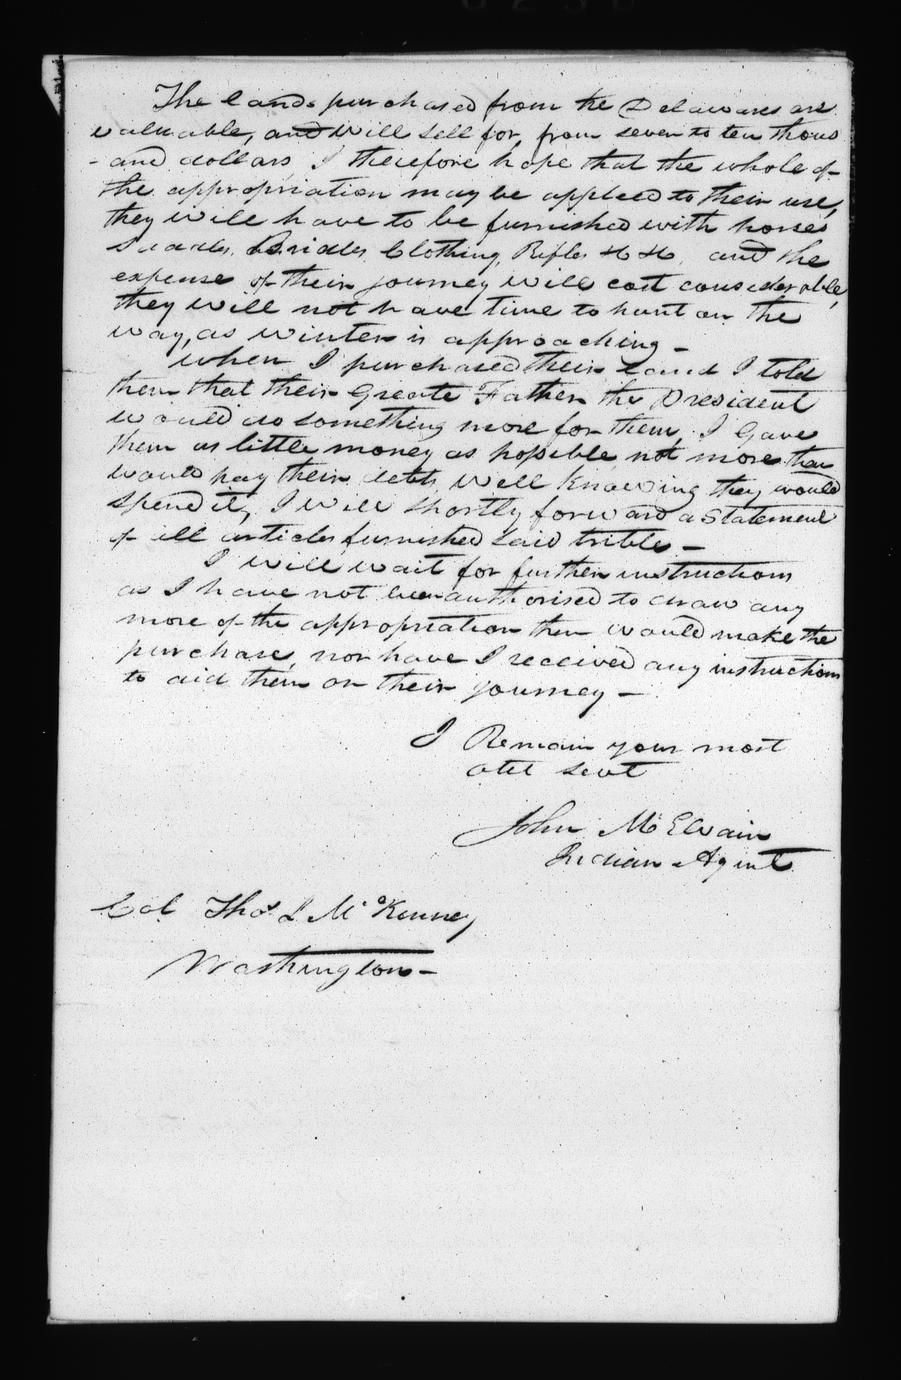 The lands purchased from the Delawares are
valuable, and will sell for from seven to ten thous
-and dollars, I therefore hope that the whole of
the appropriation may be applied to their use,
they will have to be furnished with horses
Sadales, Bridles, Clothing, Rifles &c &c, and the
expense of their journey will cost considerable,
they will not have time to hunt on the
way, as winter is approaching -
when I purchased their Land I told
them that their Greate Father the President
would do something more for them, I Gave
them as little money as possible, not more than
would pay their debts, well Knowing they would
spend it, I will shortly forward a Statement
of all articles furnished said trible -
I will wait for further instructions
as I have not been authorised to draw any
more of the appropriation then would make the
purchase, nor have I received any instructions
to aid them on their journey -
I Remain your most
obt servt
John McElvain
Indian Agent
Col Thos L McKenney
Washington -